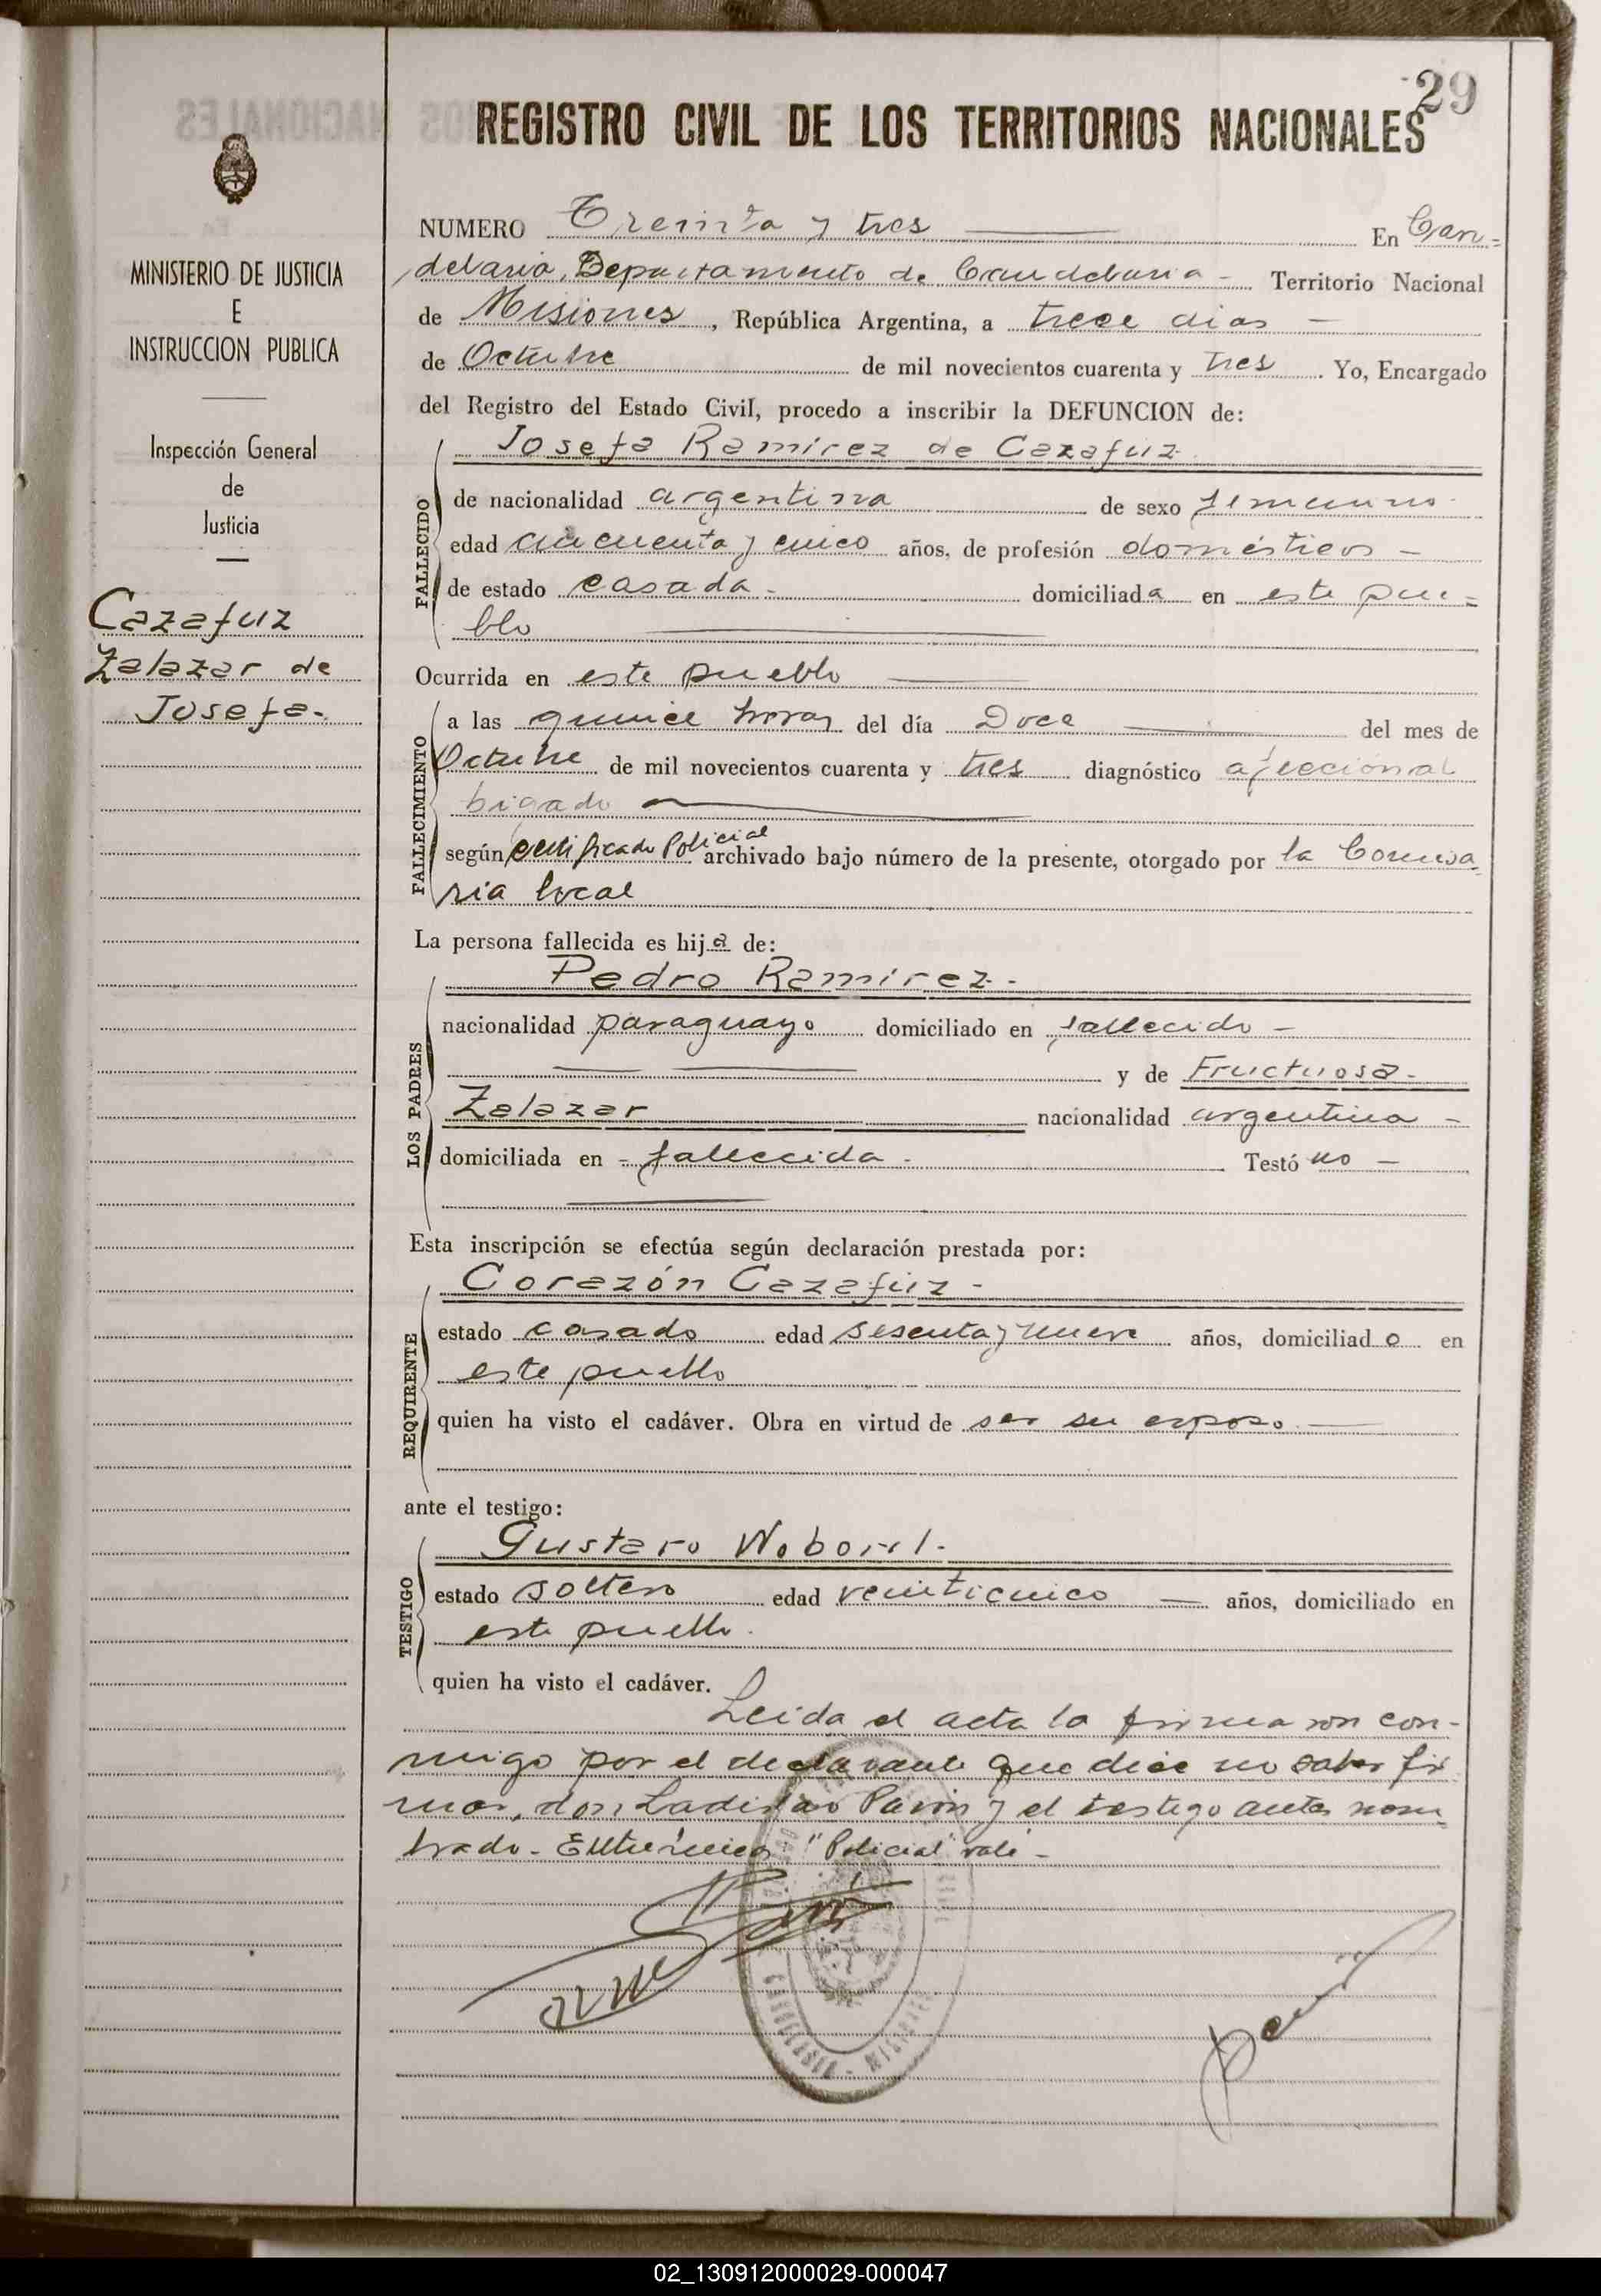 29
REGISTRO CIVIL DE LOS TERRITORIOS NACIONALES
MINISTERIO DE JUSTICIA
E
INSTRUCCION PUBLICA
Inspección General
de
Justicia
Cazafuz
Zalazar de
Josefa.
NUMERO Treinta y tres En Can=
delaria, Departamento de Candelaria - Territorio Nacional
de Misiones, República Argentina, a trece dias -
de Octubre de mil novecientos cuarenta y tres. Yo, Encargado
del Registro del Estado Civil, procedo a inscribir la DEFUNCION de:
FALLECIDO
Josefa Ramirez de Cazafuz.
de nacionalidad argentina de sexo femenino
edad cincuenta y cinco años, de profesión domésticos -
de estado casada - domiciliada en este pue=
blo
Ocurrida en este pueblo
FALLECIMIENTO
a las quince horas del día Doce del mes de
Octubre de mil novecientos cuarenta y tres diagnóstico afeccional
higado
Policial
según certificado archivado bajo número de la presente, otorgado por la Comisa
ria local
La persona fallecida es hija de:
LOS PADRES
Pedro Ramirez -
nacionalidad paraguayo domiciliado en fallecido -
y de Fructuosa -
Zalazar nacionalidad argentina -
domiciliada en - fallecida - Testó no -
Esta inscripción se efectúa según declaración prestada por:
REQUIRENTE
Corazón Cazafuz -
estado casado edad sesenta y nueve años, domiciliado en
este pueblo
quien ha visto el cadáver. Obra en virtud de ser su esposo
ante el testigo:
TESTIGO
Gustavo
estado soltero edad veinticinco años, domiciliado en
este pueblo.
quien ha visto el cadáver.
Leida el acta la firmaron con-
migo por el declarante que dice no saber fir
mar, don Ladislao y el testigo antes nom
brado - Entrelinea "Policial" vale -
CANDELARIA - MISIONES
02_130912000029-000047